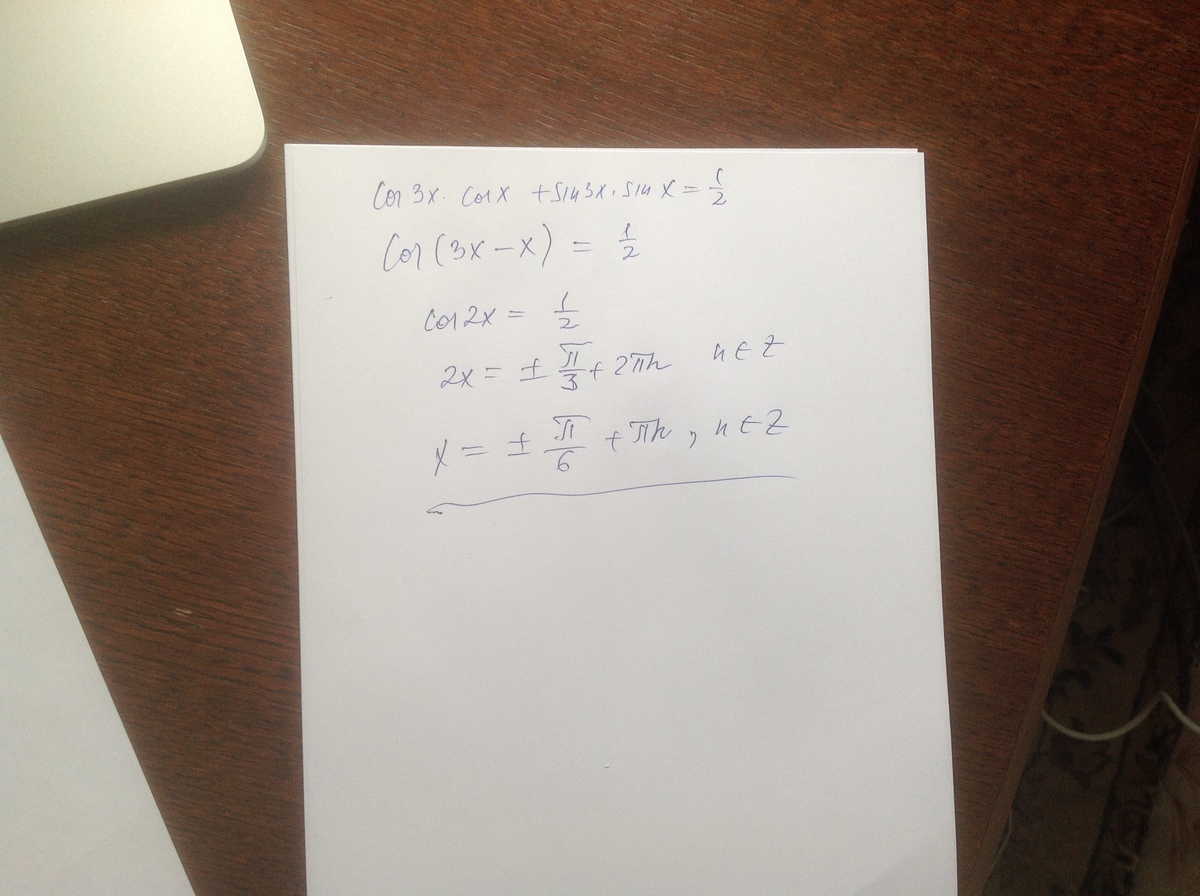 cos 3x · cos x + sin 3x · sin x = 1/2
cos (3x − x) = 1/2
cos 2x = 1/2
2x = ± π/3 + 2πn n ∈ Z
x = ± π/6 + πn, n ∈ Z